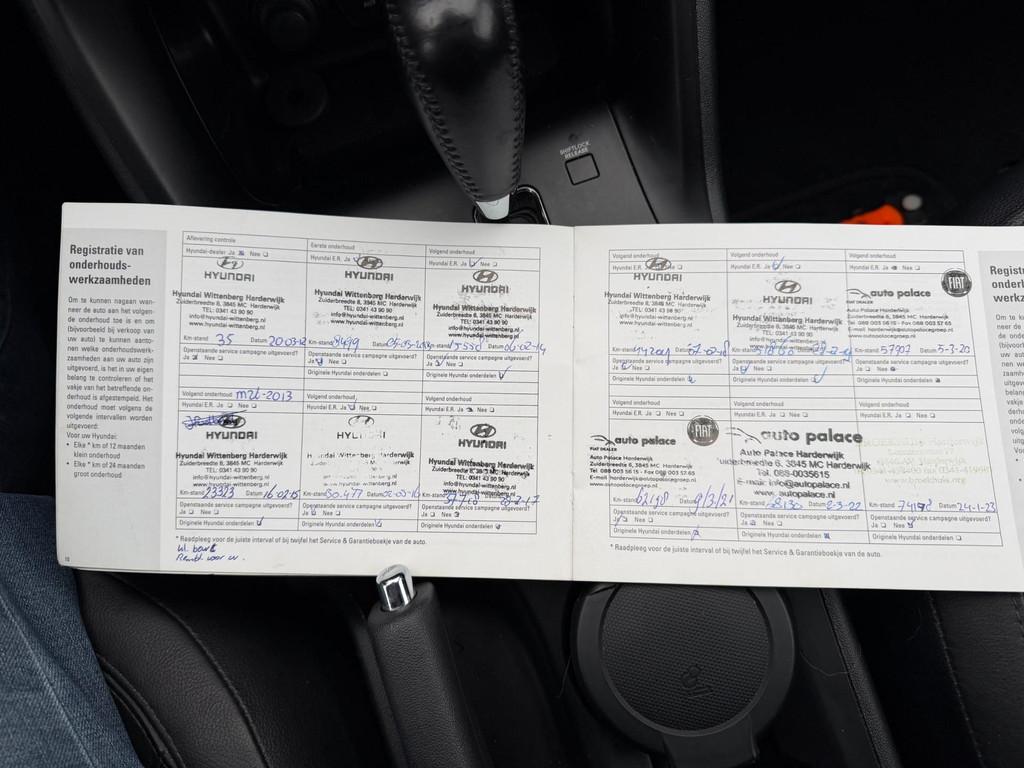 SHIFTLOCK
RELEASE
Registratie van
onderhouds-
werkzaamheden
Om te kunnen nagaan wan-
neer de auto aan het volgen-
de onderhoud toe is en om
(bijvoorbeeld bij verkoop van
uw auto) te kunnen aanto-
nen welke onderhoudswerk-
zaamheden aan uw auto zijn
uitgevoerd, is het in uw eigen
belang te controleren of het
vakje van het betreffende on-
derhoud is afgestempeld. Het
onderhoud moet volgens de
volgende intervallen worden
uitgevoerd:
Voor uw Hyundai:
• Elke * km of 12 maanden
klein onderhoud
• Elke * km of 24 maanden
groot onderhoud
Aflevering controle
Hyundai-dealer Ja Nee
HYUNDAI
Hyundai Wittenberg Harderwijk
Zuiderbreedte 8, 3845 MC Harderwijk
TEL: 0341 43 90 90
info@hyundai-wittenberg.nl
www.hyundai-wittenberg.nl
Km-stand 35 Datum 20-03-12
Openstaande service campagne uitgevoerd?
Ja Nee
Eerste onderhoud
Hyundai E.R. Ja Nee
HYUNDAI
Hyundai Wittenberg Harderwijk
Zuiderbreedte 8, 3845 MC Harderwijk
TEL: 0341 43 90 90
info@hyundai-wittenberg.nl
www.hyundai-wittenberg.nl
Km-stand Datum
Openstaande service campagne uitgevoerd?
Ja Nee
Originele Hyundai onderdelen
Volgend onderhoud
Hyundai E.R. Ja Nee
HYUNDAI
Hyundai Wittenberg Harderwijk
Zuiderbreedte 8, 3845 MC Harderwijk
TEL: 0341 43 90 90
info@hyundai-wittenberg.nl
www.hyundai-wittenberg.nl
Km-stand Datum 06-02-14
Openstaande service campagne uitgevoerd?
Ja Nee
Originele Hyundai onderdelen
Volgend onderhoud
Hyundai E.R. Ja Nee
HYUNDAI
Hyundai Wittenberg Harderwijk
Zuiderbreedte 8, 3845 MC Harderwijk
TEL: 0341 43 90 90
info@hyundai-wittenberg.nl
www.hyundai-wittenberg.nl
Km-stand Datum
Openstaande service campagne uitgevoerd?
Ja Nee
Originele Hyundai onderdelen
Volgend onderhoud
Hyundai E.R. Ja Nee
HYUNDAI
Hyundai Wittenberg Harderwijk
Zuiderbreedte 8, 3845 MC Harderwijk
TEL: 0341 43 90 90
info@hyundai-wittenberg.nl
www.hyundai-wittenberg.nl
Km-stand Datum
Openstaande service campagne uitgevoerd?
Ja Nee
Originele Hyundai onderdelen
Volgend onderhoud
Hyundai E.R. Ja Nee
FIAT
auto palace
FIAT DEALER
Auto Palace Harderwijk
Zuiderbreedte 6, 3845 MC Harderwijk
Tel 088 003 56 15 - Fax 088 003 57 65
E-mail harderwijk@autopalacegroep.nl
www.autopalacegroep.nl
Km-stand 57907 Datum 5-3-20
Openstaande service campagne uitgevoerd?
Ja Nee
Originele Hyundai onderdelen
Volgend onderhoud
Hyundai E.R. Ja Nee
HYUNDAI
Hyundai Wittenberg Harderwijk
Zuiderbreedte 8, 3845 MC Harderwijk
TEL: 0341 43 90 90
info@hyundai-wittenberg.nl
www.hyundai-wittenberg.nl
Km-stand 23323 Datum 16-02-15
Openstaande service campagne uitgevoerd?
Ja Nee
Originele Hyundai onderdelen
Hyundai E.R. Ja Nee
HYUNDAI
Km-stand 30.477 Datum
Openstaande service campagne uitgevoerd?
Ja Nee
Originele Hyundai onderdelen
Volgend onderhoud
Hyundai E.R. Ja Nee
HYUNDAI
Hyundai Wittenberg Harderwijk
Zuiderbreedte 8, 3845 MC Harderwijk
TEL: 0341 43 90 90
info@hyundai-wittenberg.nl
www.hyundai-wittenberg.nl
Km-stand Datum
Openstaande service campagne uitgevoerd?
Ja Nee
Originele Hyundai onderdelen
Volgend onderhoud
Hyundai E.R. Ja Nee
FIAT
auto palace
FIAT DEALER
Auto Palace Harderwijk
Zuiderbreedte 6, 3845 MC Harderwijk
Tel 088 003 56 15 - Fax 088 003 57 65
E-mail harderwijk@autopalacegroep.nl
www.autopalacegroep.nl
Km-stand Datum 9/3/21
Openstaande service campagne uitgevoerd?
Ja Nee
Originele Hyundai onderdelen
Volgend onderhoud
Hyundai E.R. Ja Nee
auto palace
Auto Palace Harderwijk
Zuiderbreedte 6, 3845 MC Harderwijk
Tel. 088-0035615
E-mail: info@autopalace.nl
www. autopalace.nl
Km-stand Datum 2-3-22
Openstaande service campagne uitgevoerd?
Ja Nee
Originele Hyundai onderdelen
Volgend onderhoud
Hyundai E.R. Ja Nee
Km-stand Datum 24-1-23
Openstaande service campagne uitgevoerd?
Ja Nee
Originele Hyundai onderdelen
* Raadpleeg voor de juiste interval of bij twijfel het Service & Garantieboekje van de auto.
* Raadpleeg voor de juiste interval of bij twijfel het Service & Garantieboekje van de auto.